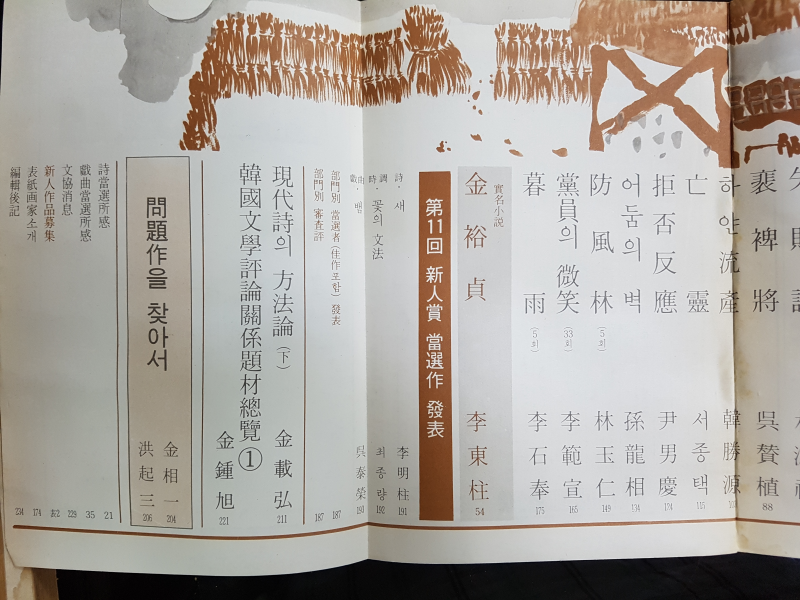 裵裨將 吳贊植 88
하얀 流產 韓勝源
亡靈 서종택 115
拒否反應 尹男慶 124
어둠의 벽 孫龍相 134
防風林 (5회) 林玉仁 149
黨員의 微笑 (33회) 李範宣 165
暮雨 (5회) 李石奉 175
實名小説
金裕貞 李東柱 54
第11回 新人賞 當選作 發表
詩・새 李明柱 191
時調・꽃의 文法 최종량 192
吳泰榮 193
部門別 當選者 (佳作포함) 發表 187
部門別 審査評 187
現代詩의 方法論 (下) 金載弘 211
韓國文學評論關係題材總覽 ① 金鍾旭 221
問題作을 찾아서
金相一 204
洪起三 206
詩當選所感 21
戱曲當選所感 35
文協消息 229
新人作品募集
表紙画家소개 174
編輯後記 234